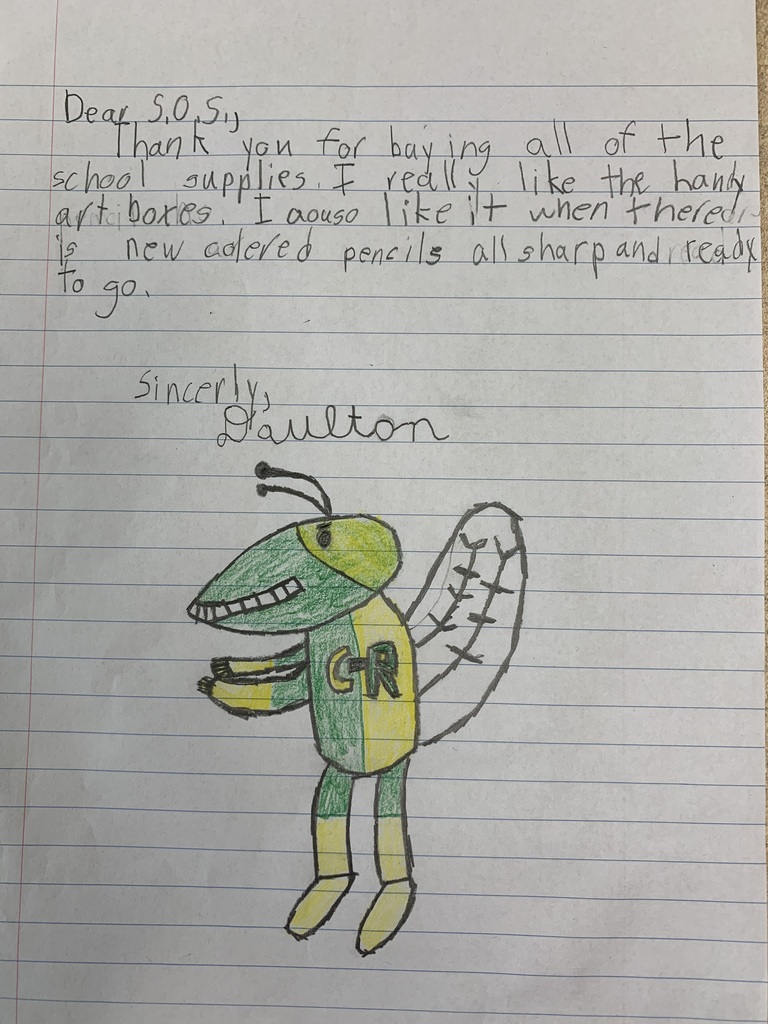 Dear S,O,S,,
Thank you for buying all of the
school supplies. I really like the handy
art boxes. I aouso like it when there
is new colered pencils all sharp and ready
to go.
Sincerly,
Daulton
C-R